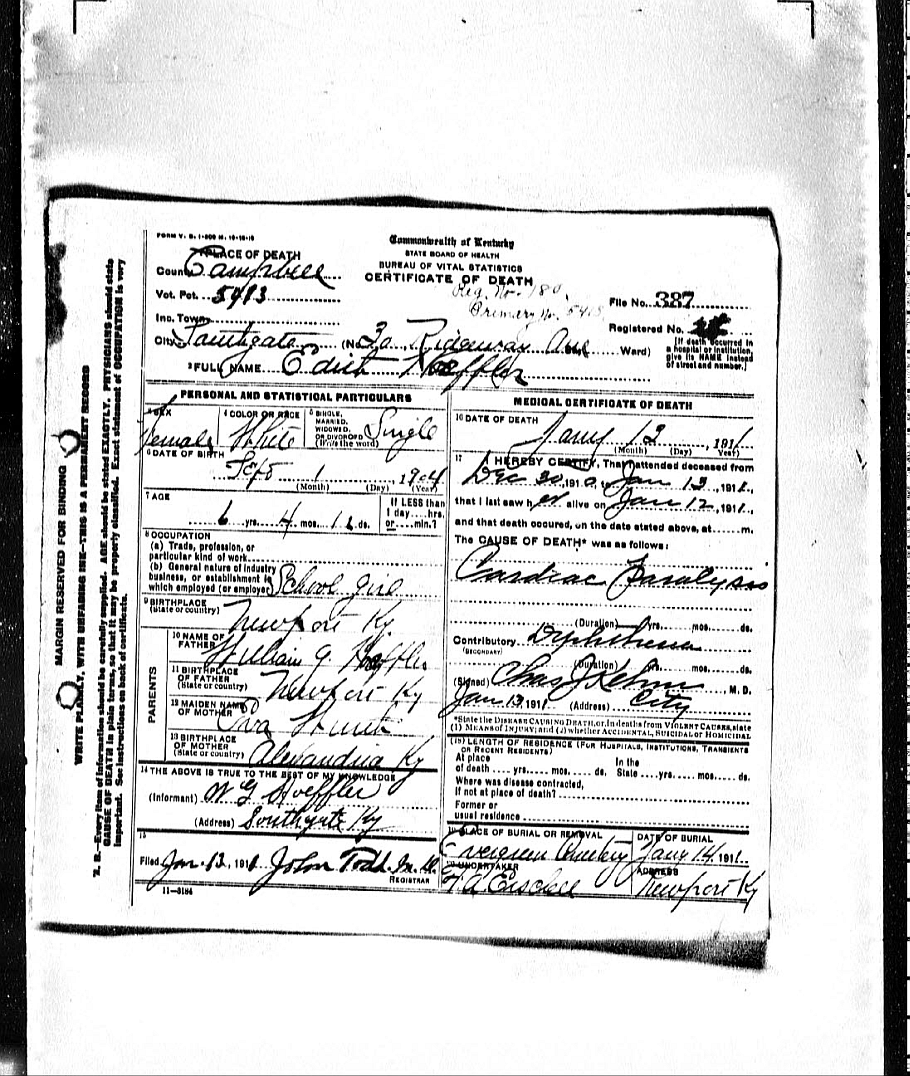 FORM V. S. 1-
Commonwealth of Kentucky
STATE BOARD OF HEALTH
BUREAU OF VITAL STATISTICS
CERTIFICATE OF DEATH
PLACE OF DEATH
County Campbell
Vot. Pct. 5413
Inc. Town
City Southgate (No. Ridgeway Ave Ward)
Reg. No. 180
Primary No. 5413
File No. 387
Registered No.
[If death occurred in a hospital or institution, give its NAME instead of street and number.]
2 FULL NAME Edith Hoeffler
PERSONAL AND STATISTICAL PARTICULARS
SEX Female
4 COLOR OR RACE White
5 SINGLE, MARRIED, WIDOWED, OR DIVORCED (Write the word) Single
6 DATE OF BIRTH
Sept 1 1904
(Month) (Day) (Year)
7 AGE
6 yrs. 4 mos. ds.
If LESS than 1 day....hrs. or.....min.?
8 OCCUPATION
(a) Trade, profession, or particular kind of work
(b) General nature of industry business, or establishment in which employed (or employer) School girl
9 BIRTHPLACE
(State or country) Newport Ky
PARENTS
10 NAME OF FATHER William G. Hoeffler
11 BIRTHPLACE OF FATHER
(State or country) Newport Ky
12 MAIDEN NAME OF MOTHER
13 BIRTHPLACE OF MOTHER
(State or country) Alexandria Ky
14 THE ABOVE IS TRUE TO THE BEST OF MY KNOWLEDGE
(Informant) W G Hoeffler
(Address) Southgate Ky
15
Filed Jan. 13, 1911 John Todd. M. D.
REGISTRAR
11-3184
MEDICAL CERTIFICATE OF DEATH
16 DATE OF DEATH
Jany 12, 1911
(Month) (Day) (Year)
17 I HEREBY CERTIFY, That I attended deceased from
Dec 30, 1910, to Jan 12, 1911,
that I last saw her alive on Jan 12, 1911,
and that death occured, on the date stated above, at......m.
The CAUSE OF DEATH* was as follows:
Cardiac Paralysis
(Duration) yrs. mos. ds.
Contributory Diphtheria
(SECONDARY)
(Duration) yrs. mos. ds.
(Signed) Chas J Kehm M. D.
Jan 13, 1911 (Address) City
*State the DISEASE CAUSING DEATH, or, in deaths from VIOLENT CAUSES, state (1) MEANS OF INJURY; and (2) whether ACCIDENTAL, SUICIDAL or HOMICIDAL
(18) LENGTH OF RESIDENCE (FOR HOSPITALS, INSTITUTIONS, TRANSIENTS OR RECENT RESIDENTS)
At place of death....yrs....mos....ds. In the State....yrs....mos....ds.
Where was disease contracted, If not at place of death?
Former or usual residence
19 PLACE OF BURIAL OR REMOVAL
Evergreen Cemetery
DATE OF BURIAL
Jany 14, 1911
20 UNDERTAKER
ADDRESS
Newport Ky
MARGIN RESERVED FOR BINDING
WRITE PLAINLY, WITH UNFADING INK—THIS IS A PERMANENT RECORD
N. B.—Every item of information should be carefully supplied. AGE should be stated EXACTLY. PHYSICIANS should state
CAUSE OF DEATH in plain terms, so that it may be properly classified. Exact statement of OCCUPATION is very
important. See instructions on back of certificate.